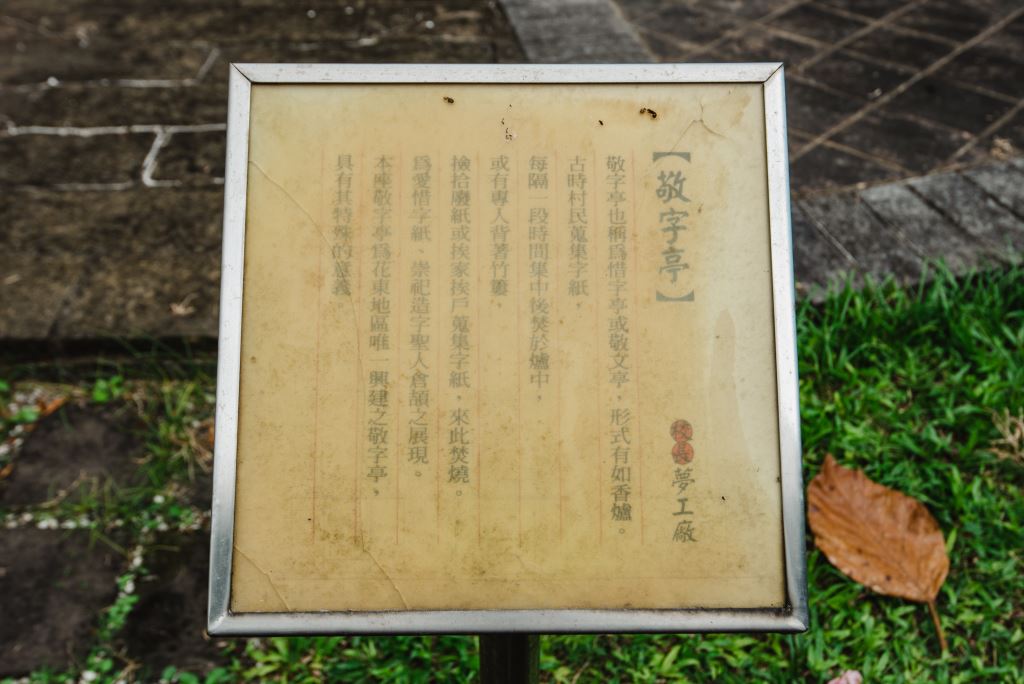 【敬字亭】
校長夢工廠
敬字亭也稱爲惜字亭或敬文亭，形式有如香爐。
古時村民蒐集字紙，
每隔一段時間集中後焚於爐中，
或有專人背著竹簍，
撿拾廢紙或挨家挨戶蒐集字紙，來此焚燒。
爲愛惜字紙、崇祀造字聖人倉頡之展現。
本座敬字亭爲花東地區唯一興建之敬字亭，
具有其特殊的意義